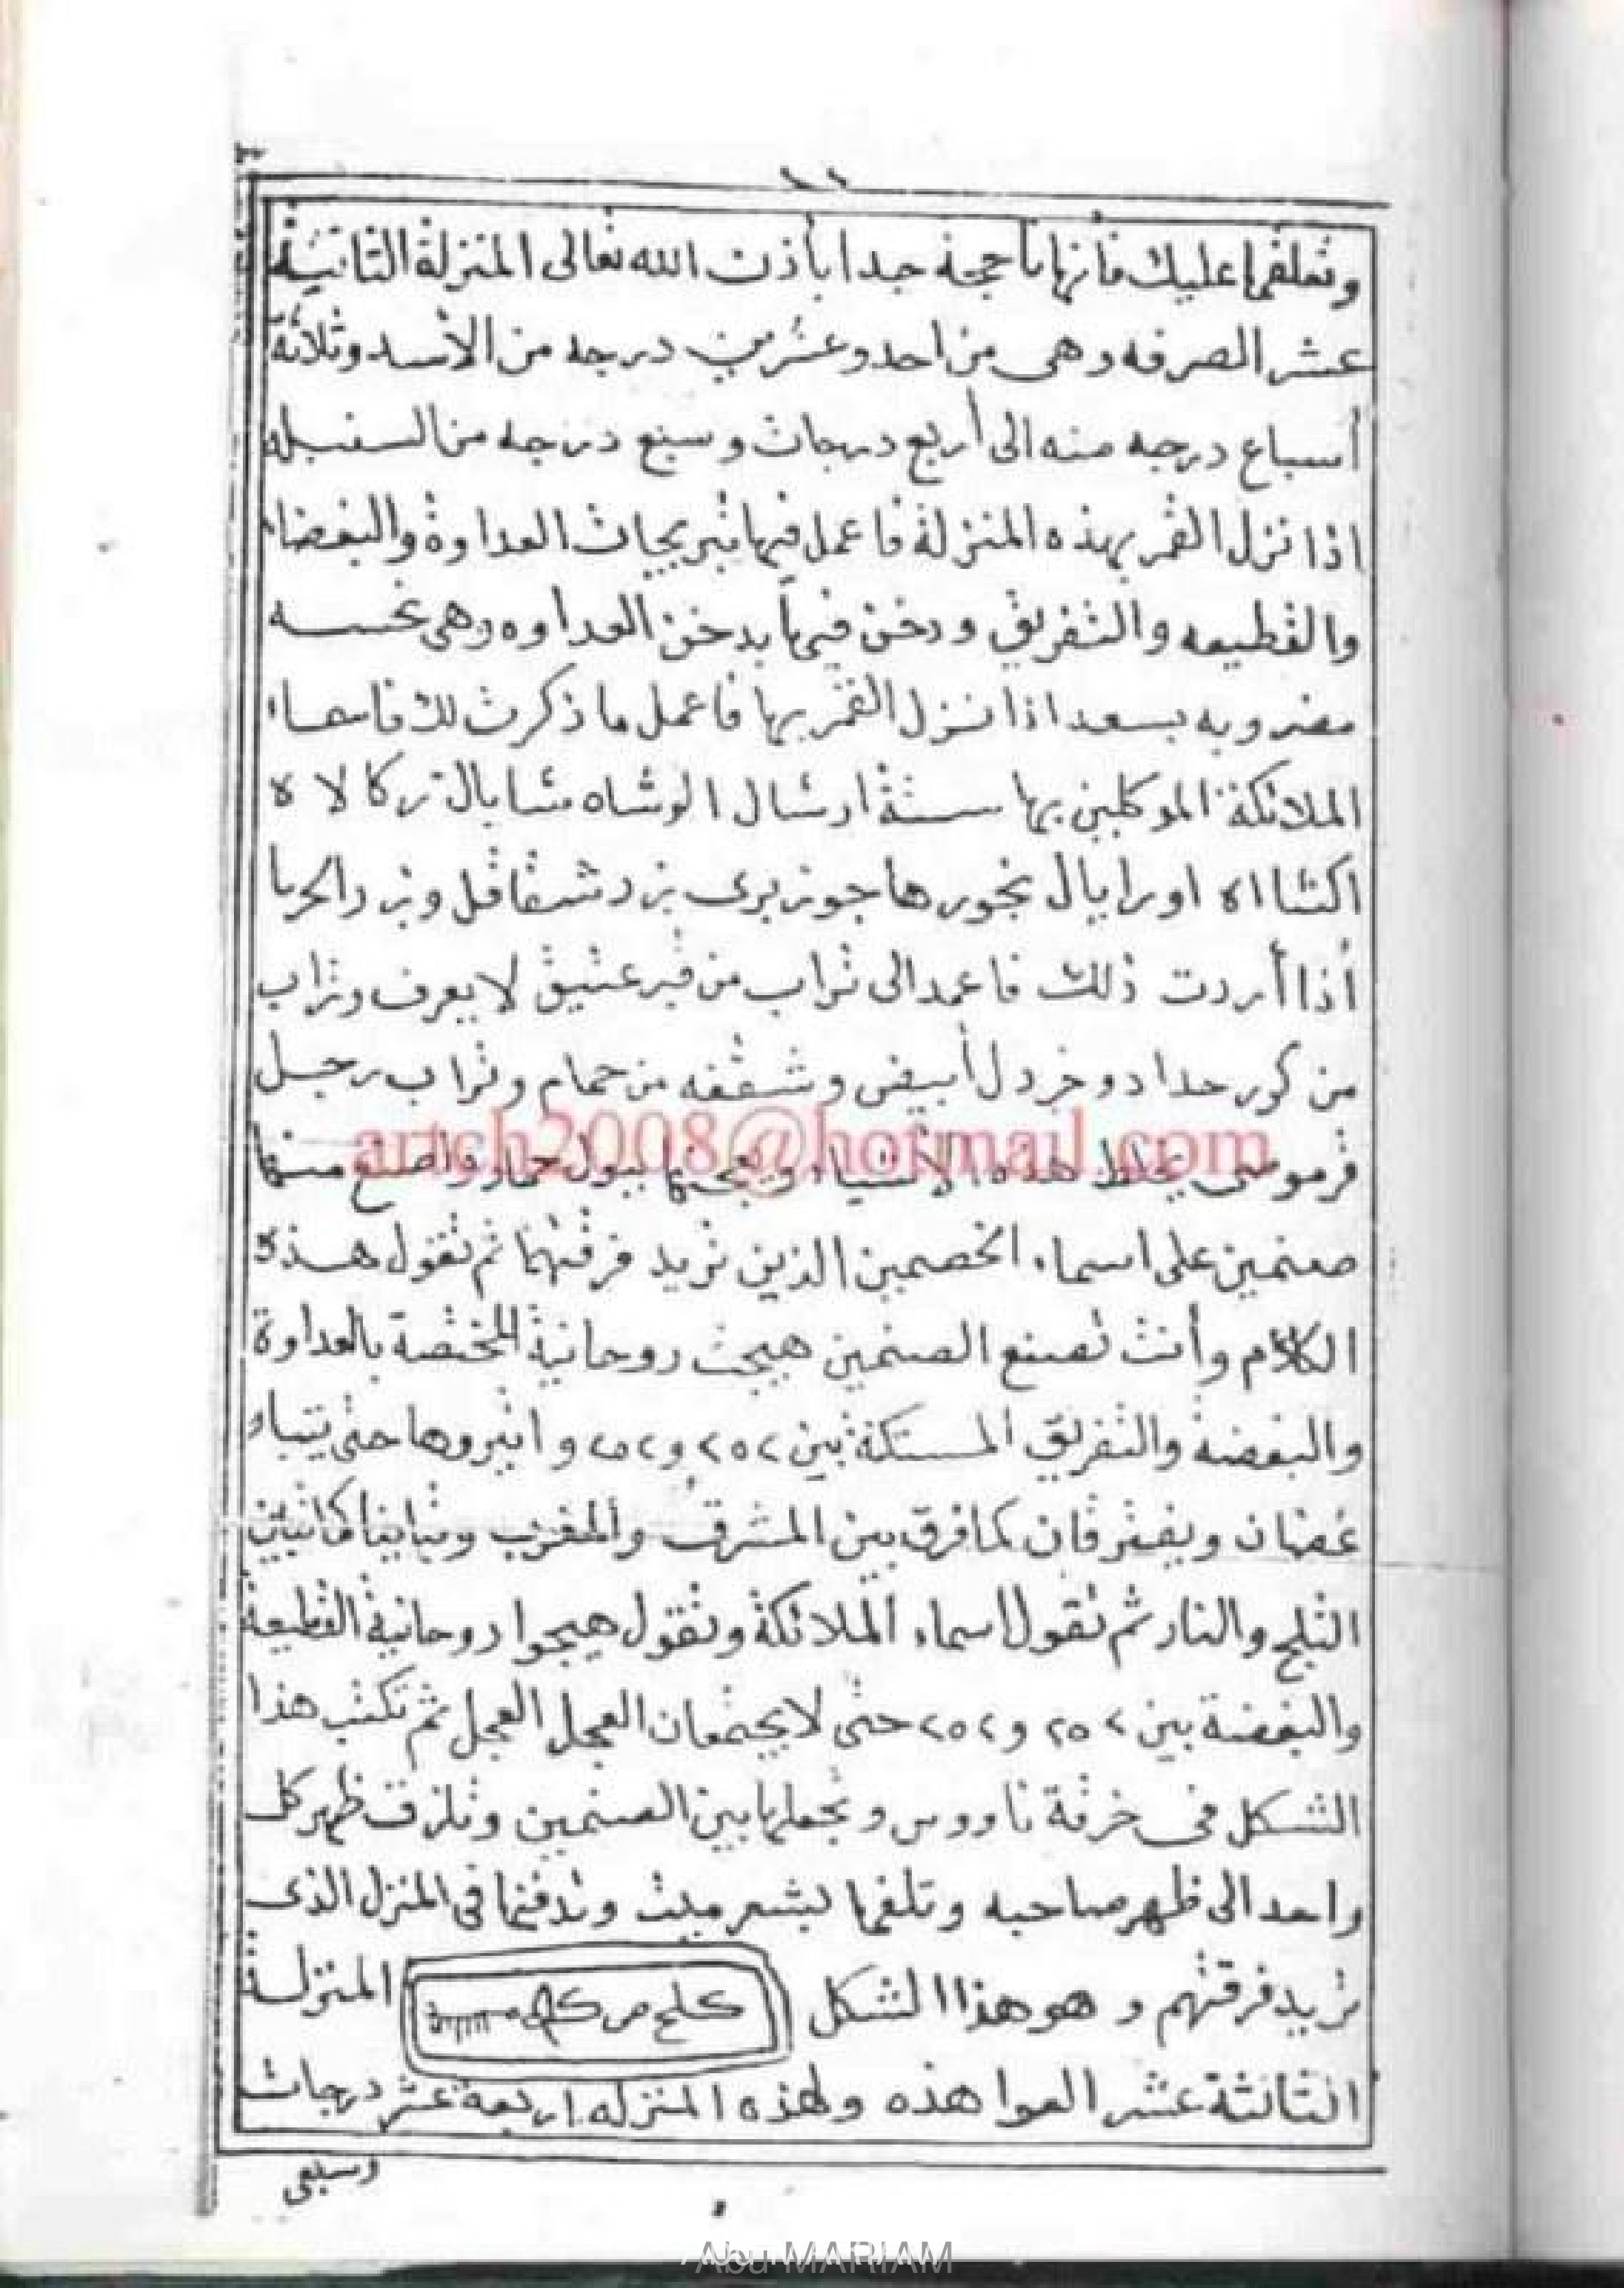 ١١
وتعلقها عليك فأنها ناجحة جدا بأذن الله تعالى المنزلة الثانية
عشر الصرفه وهى من احد وعشرين درجه من الأسد وثلاثة
أسباع درجه منه الى أربع درجات وسبع درجه من السنبله
اذا نزل القمر بهذه المنزلة فاعمل فيها نيريجات العداوة والبغضاء
والقطيعه والتفريق ودخن فيها بدخن العداوه وهى نحسه
مضروبه بسعد اذا نزل القمر بها فاعمل ما ذكرت لك فاسماء
الملائكة الموكلين بها ستة ارشال الوشاه شابال تركا لا ه
اكثااه اورابيال بخورها جوز برى بزر شقاقل وبزر الحربا
أذا أردت ذلك فاعمد الى تراب من قبر عتيق لا يعرف وتراب
من كور حداد وخردل أبيض وشقفه من حمام وتراب رجل
artch2008@hotmail.com
يخلط هذه الاشياء ويعجنها ببول حمار واصنع منها
صنمين على اسماء الخصمين الذين تريد فرقتهما ثم تقول هذه
الكلام وأنت تصنع الصنمين هيجت روحانية المختصة بالعداوة
والبغضة والتفريق بين ٢٥٢ و٢٥٢ و حتى يتباء
غضان ويفترقان كما فرق بين المشرق والمغرب
الثلج والنار ثم تقول اسماء الملائكة وتقول هيجوا روحانية القطيعة
والبغضة بين ٢٥٢ و ٢٥٢ حتى لا يجتمعان العجل العجل ثم تكتب هذا
الشكل فى خرقة ناووس وتجعلها بين الصنمين وتلزق ظهر كل
واحد الى ظهر صاحبه وتلفها بشعر ميت وتدفنها فى المنزل الذى
تريد فرقتهم و هو هذا الشكل المنزلة
الثالثة عشر العوا هذه ولهذه المنزله اربعة عشر درجات
وسبعى
Abu MARIAM